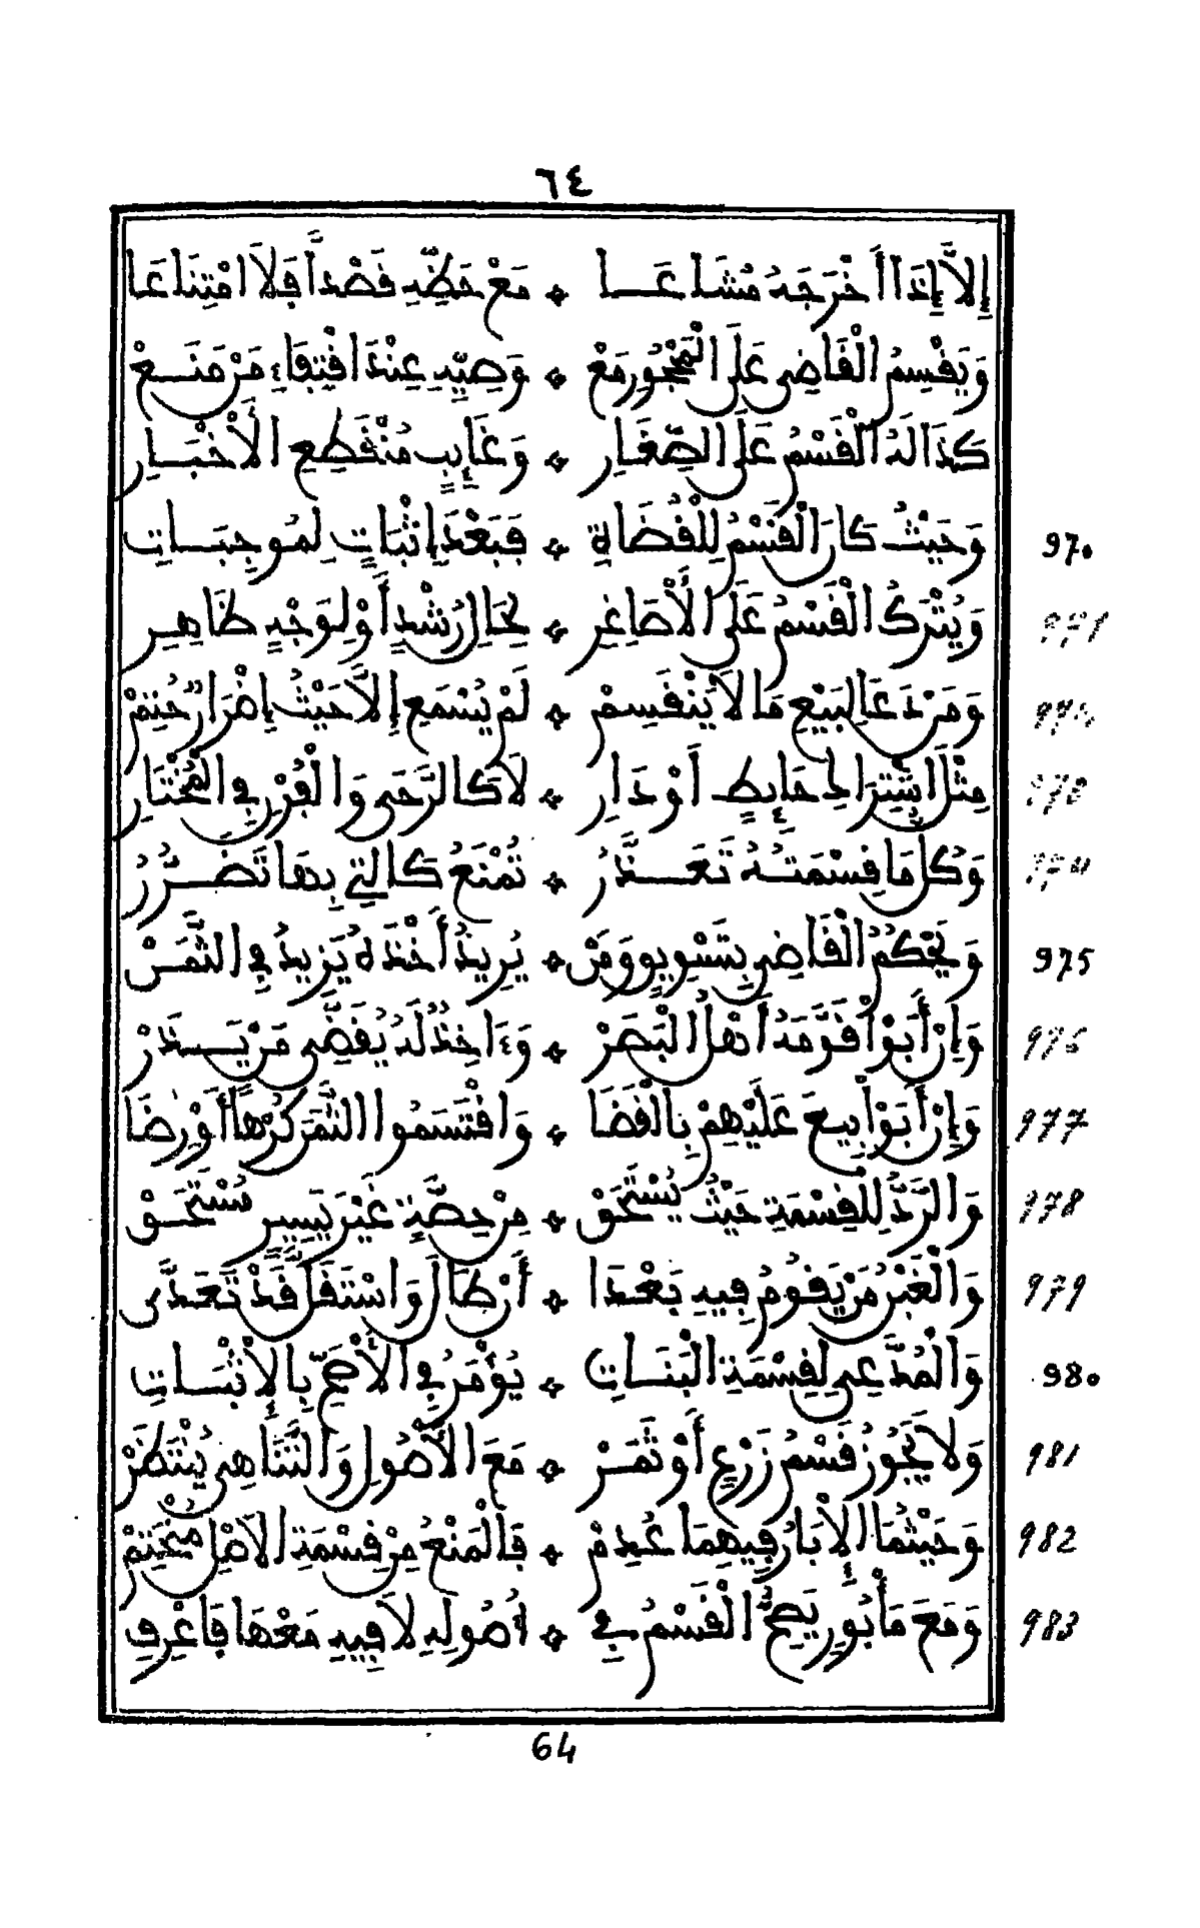 ٦٤
إِلاَّ إِذَا أَخْرَجَهُ مُشَاعَا ۞ مَعْ حَظِّهِ قَصْداً فَلاَ امْتِنَاعَا
وَيَقْسِمُ الْقَاضِي عَلَى الْمَحْجُورِ مَعْ ۞ وَصِيِّهِ عِنْدَ اقْتِفَاءِ مَنْ مَنَعْ
كَذَا لَهُ الْقَسْمُ عَلَى الصِّغَارِ ۞ وَغَائِبٍ مُنْقَطِعِ الأَخْبَارِ
وَحَيْثُ كَانَ الْقَسْمُ لِلْقُضَاةِ ۞ فَبَعْدَ إِثْبَاتٍ لِمُوجِبَاتِ 970
وَيُتْرَكُ الْقَسْمُ عَلَى الأَصَاغِرِ ۞ لِحَالِ رُشْدٍ أَوْ لِوَجْهٍ ظَاهِرِ 971
وَمَنْ دَعَا لِبَيْعِ مَا لاَ يَنْقَسِمْ ۞ لَمْ يُسْمَعِ إِلاَّ حَيْثُ إِضْرَارٌ حُتِمْ
مِثْلَ اشْتِرَاكِ حَائِطٍ أَوْ دَارِ ۞ لاَ كَالرَّحَى وَالْفُرْنِ فِي الْمُخْتَارِ
وَكُلُّ مَا قِسْمَتُهُ تَعَذَّرُ ۞ تُمْنَعُ كَالَّتِي بِهَا تَضَرُّرُ
وَيَحْكُمُ الْقَاضِي بِتَسْوِيقٍ وَمَنْ ۞ يُرِيدُ أَخْذَهُ يَزِيدُ فِي الثَّمَنْ 975
وَإِنْ أَبَوْا قَوَّمَهُ أَهْلُ الْبَصَرْ ۞ وَءَاخِذٌ لَهُ يُقَضِّي مَنْ يَذَرْ 976
وَإِنْ أَبَوْا بِيعَ عَلَيْهِمْ بِالْقَضَا ۞ وَاقْتَسَمُوا الثَّمَنَ كُرْهاً أَوْ رِضَا 977
وَالرَّدُّ لِلْقِسْمَةِ حَيْثُ يُسْتَحَقْ ۞ مِنْ حِصَّةٍ غَيْرُ يَسِيرٍ مُسْتَحَقْ 978
وَالْغَبْنُ مَنْ يَقُومُ فِيهِ بَعْدَا ۞ أَنْ طَالَ وَاسْتَغَلَّ قَدْ تَعَدَّى 979
وَالْمُدَّعِي لِقِسْمَةِ الْبَتَاتِ ۞ يُؤْمَرُ فِي الأَصَحِّ بِالإِثْبَاتِ 980
وَلاَ يَجُوزُ قَسْمُ زَرْعٍ أَوْ ثَمَرْ ۞ مَعَ الأُصُولِ وَالتَّنَاهِي يُنْتَظَرْ 981
وَحَيْثُمَا الإِبَّارُ فِيهِمَا عُدِمْ ۞ فَالْمَنْعُ مِنْ قِسْمَةِ الاَصْلِ مُنْحَتِمْ 982
وَمَعَ مَأْبُورٍ يَصِحُّ الْقَسْمُ فِي ۞ أُصُولِهِ لاَ فِيهِ مَعْهَا فَاعْرِفِ 983
64